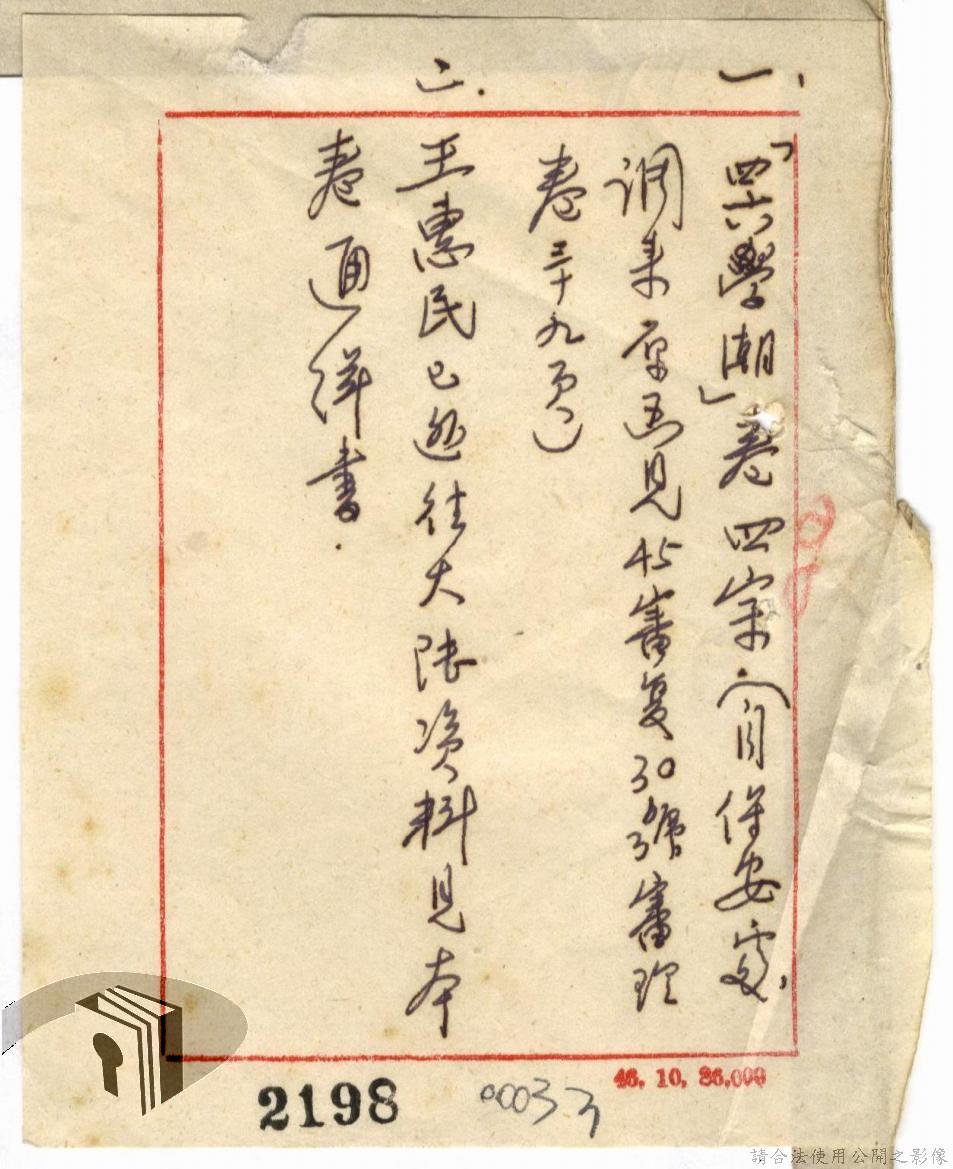 一.
「四六學潮」卷四宗（向保安處
調來原函見45審复30號審理
卷三十九頁）
二.
王惠民已逃往大陸資料見本
卷通緝書.
46. 10. 86,000
2198
00033
請合法使用公開之影像